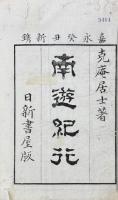 嘉永癸丑新鐫
克庵居士著
南遊紀行
日新書屋版